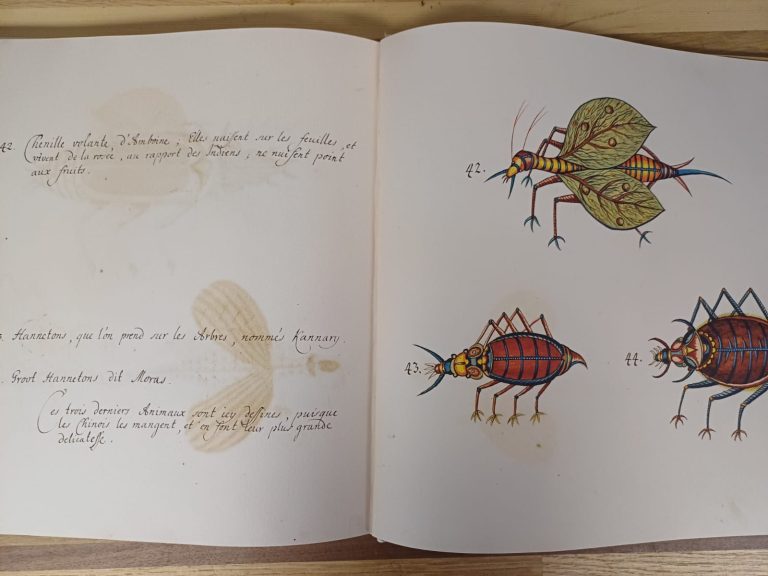 42. Chenille volante, d'Amboine; Elles naissent sur les feuilles, et
vivent de la rosée, au rapport des Indiens; ne nuisent point
aux fruits.
. Hannetons, que l'on prend sur les Arbres, nommés Kannary.
. Groot Hannetons dit Moras.
Ces trois derniers Animaux sont icy dessines, puisque
les Chinois les mangent, et en font leur plus grande
delicatesse.
42.
43.
44.